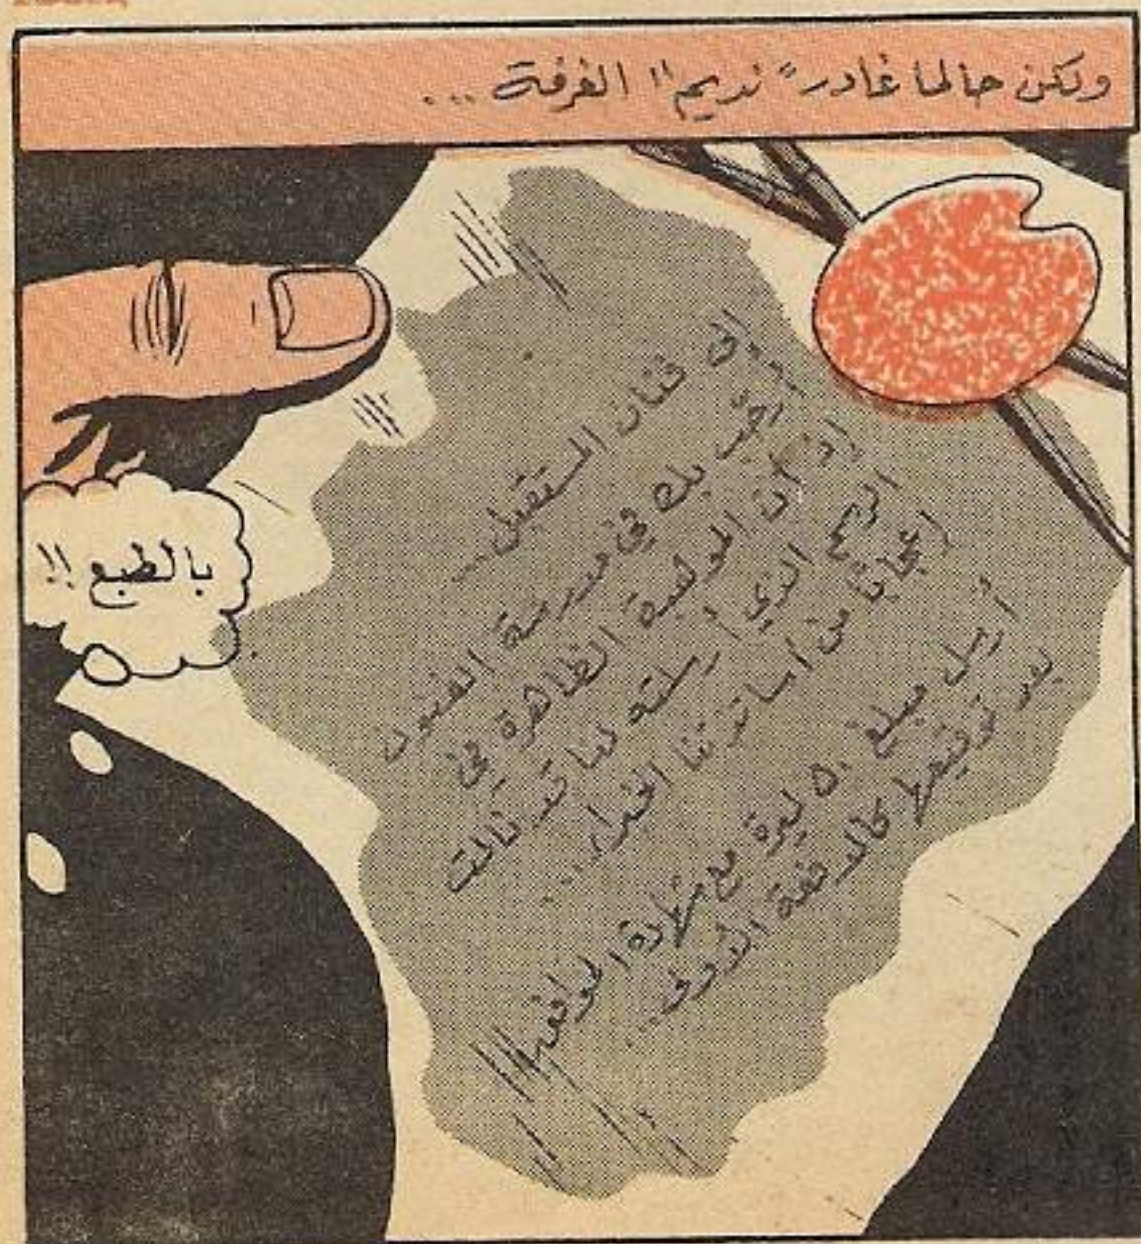 ولكن حالما غادر "نديم" الغرفة ...
إلى فنان المستقبل...
أرحّب بك في مدرسة الفنون
إذ أن الموهبة الظاهرة في
الرسم الذي أرسلته لنا قد نالت
إعجابًا من أساتذتنا الخبراء...
أرسل مبلغ ٥٠ ليرة مع شهادة الموافقة
بعد توقيعها كالدفعة الأولى...
بالطبع !!